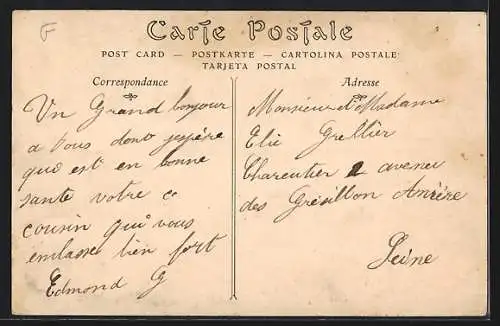 F
Carte Postale
POST CARD — POSTKARTE — CARTOLINA POSTALE
TARJETA POSTAL
Correspondance
Adresse
Un Grand bonjour
a tous dont jespère
que est en bonne
sante votre c
cousin qui vous
emlasse bien fort
Edmond G
Monsieur et Madame
Elie Grellier
Charentier 2 avenue
des Grésillon
Seine